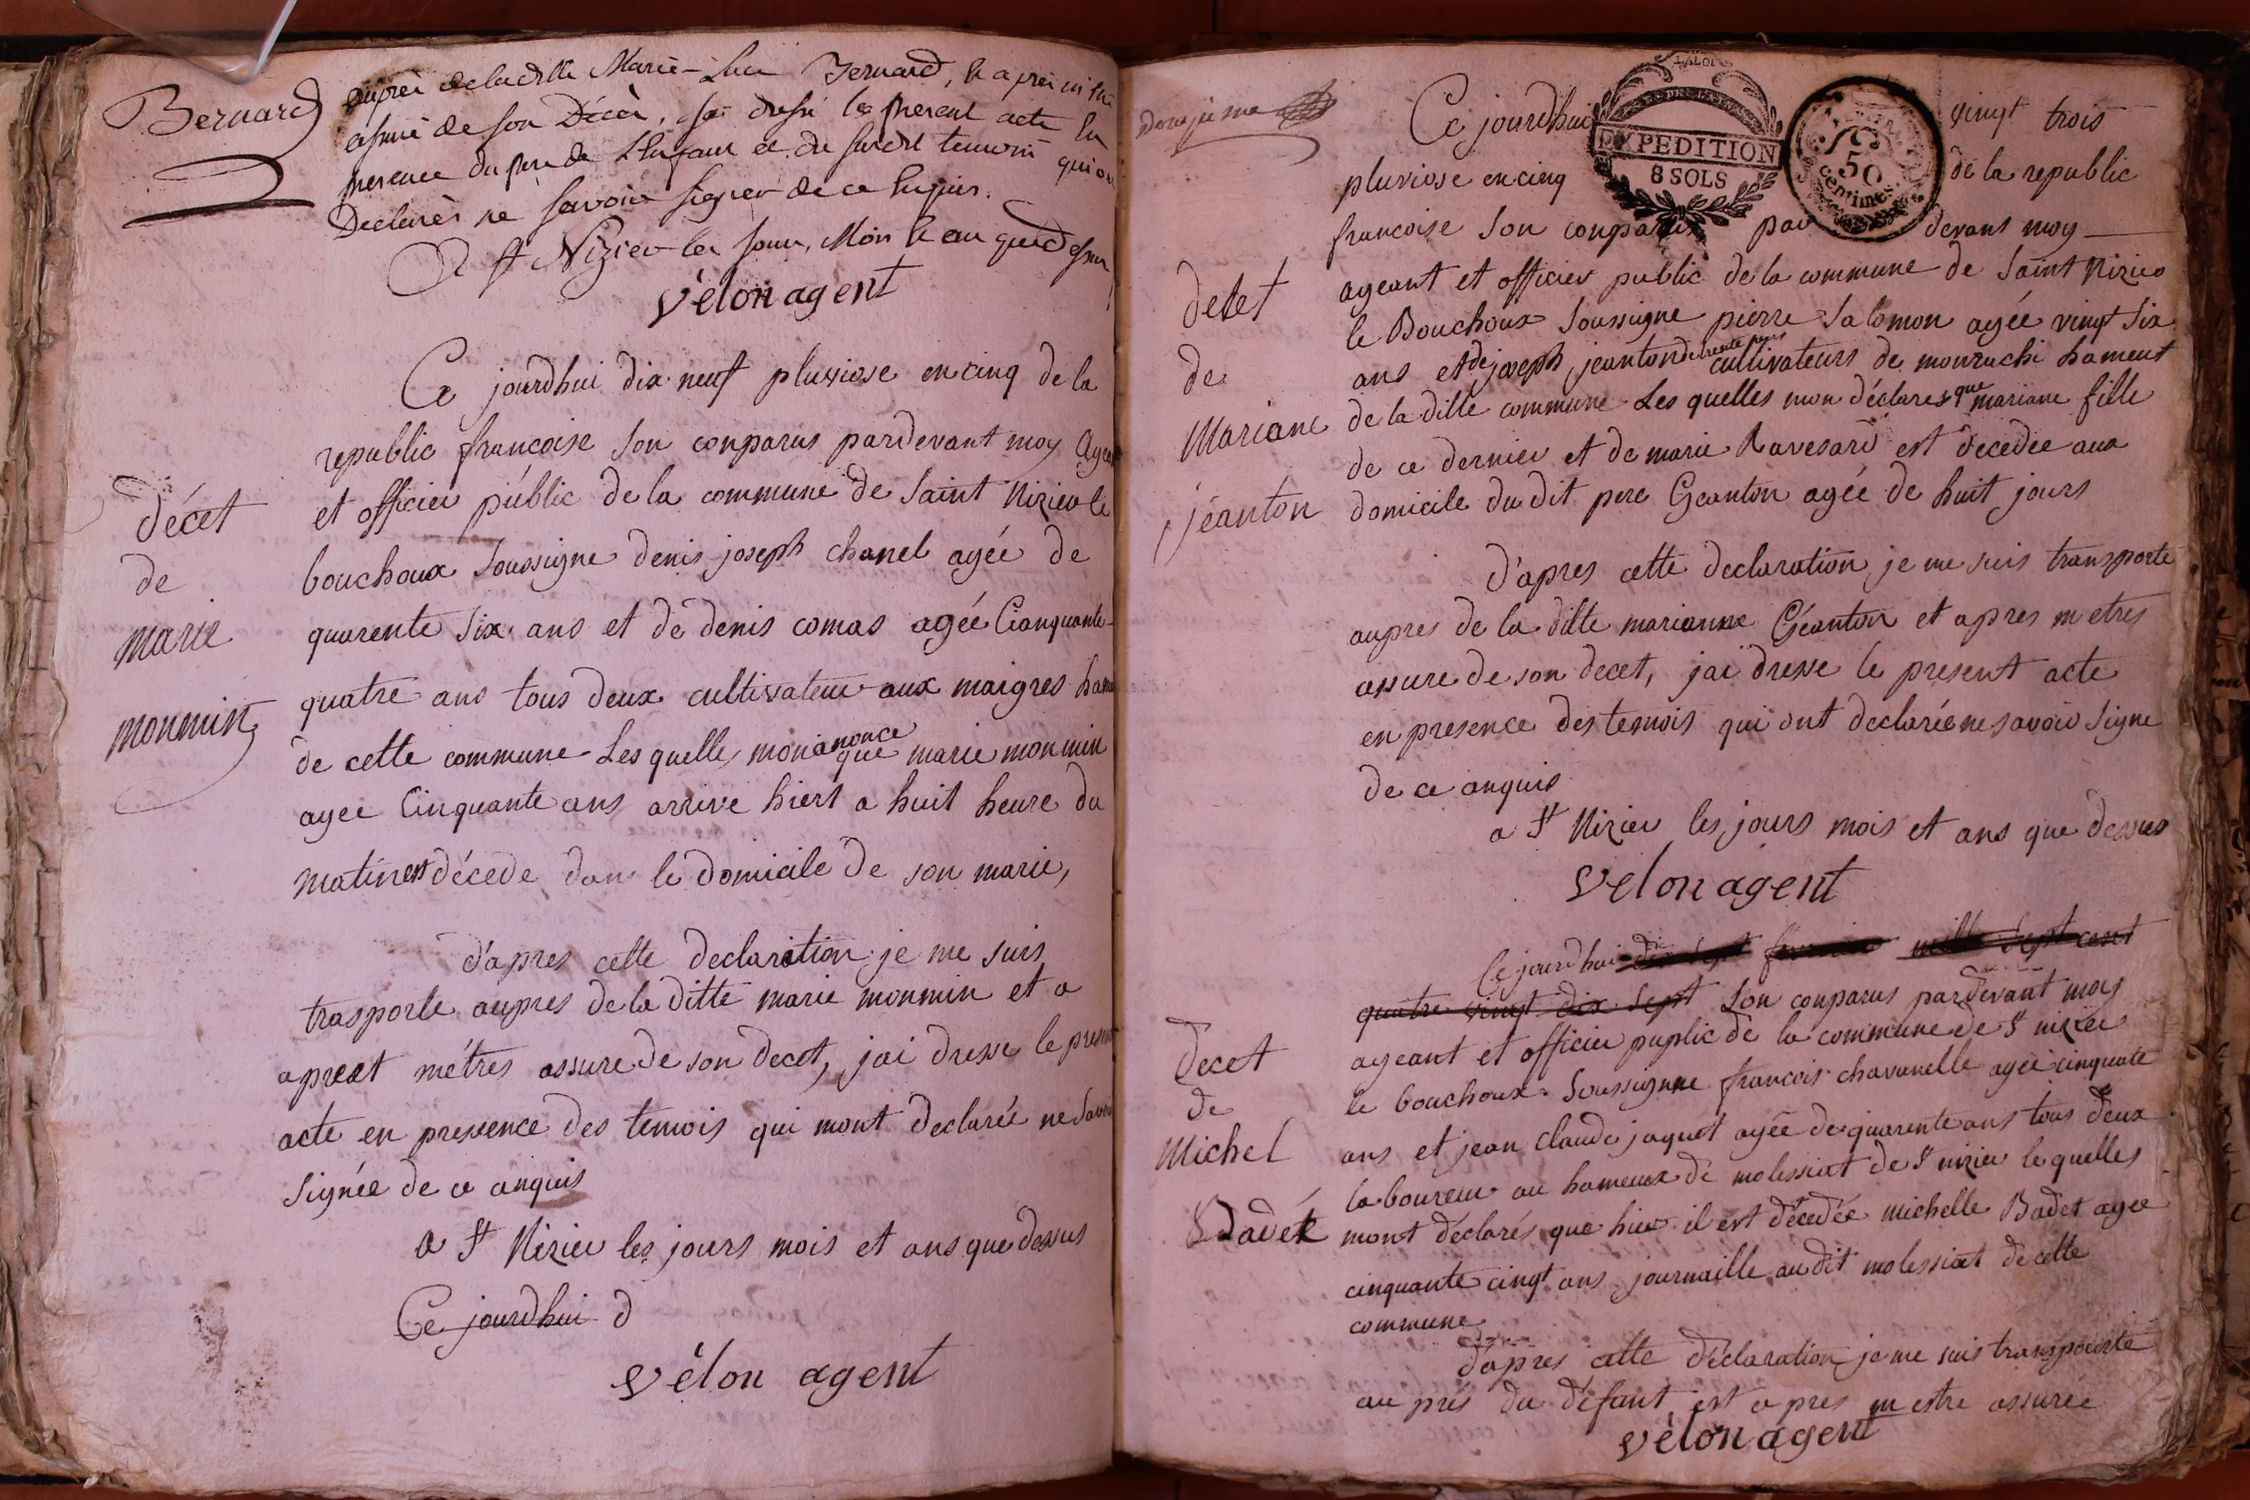 Bernard
auprès de la ditte Marie-Luce Bernard, & apres m'être
assuré de son Décès, j'ai dressé le present acte En
presence du pere de L'Enfant et du susdit temoin qui on
Declarès ne Savoir signer de ce Enquis.
A St Nizier les jour, Mois & an que dessus
Vèlon agent
Ce jourdhui dix neuf pluviose en cinq de la
republic francoise Son conparus pardevant moy agea
et officier public de la commune de Saint Nizier le
bouchoux Soussigne denis joseph chanel agée de
quarente Six ans et de denis comas agée Cianquante-
quatre ans tous deux cultivateur aux maigres ham
de cette commune Les quelle mon anonce que marie monmin
agee Cinquante ans arrive hiert a huit heure du
matin est décede dans le domicile de son marie,
décet
de
marie
monmin
d'apres cette declaration je me suis
trasporte aupres de la ditte marie monmin et a
apreat métres assure de son decet, jai dresse le present
acte en pressence des temois qui mont declarée ne Savoir
Signée de ce anquis
a St Nizier les jours mois et ans que dessus
Ce jourdhui d
Vélon agent
Douzieme
Ce jourdhui vingt trois
EXPEDITION
8 SOLS
50
centimes
pluviose en cinq de la republic
francoise Son conparus par devant moy
ageant et officier public de la commune de Saint Nizier
le Bouchoux Soussigne pierre Salomon agée vingt Six
ans et de joseph jeanton de trente ans cultivateurs de monruchi hament
de la ditte commune Les quelles mon déclares que mariane fille
de ce dernier et de marie Ravesard est decedee aux
domicile du dit pere Geanton agée de huit jours
decet
de
Mariane
jéanton
d'apres cette declaration je me suis transporte
aupres de la ditte marianne Géanton et apres metres
assure de son decet, jai dresse le present acte
en presence des temois qui ont declarée ne savoir Signe
de ce anquis
a St Nizier les jours mois et ans que dessus
Vélon agent
Ce jourdhui dix Sept fevrier mille Sept cent
quatre vingt dix Sept Son conparus pardevant moy
ageant et officier puplic de la commune de St nizier
le bouchoux Soussignne francois chavanelle agée cinquate
ans et jean claude jaquet agée de quarente ans tous deux
laboureur au hameaux de molessiat de St nizier lequelles
mont déclarés que hier il est décedée michelle Badet agee
cinquante cinqt ans journaille audit molessiat de cette
commune
Decet
de
Michel
Badét
d'apres cette déclaration je me suis transpoirté
au prés du defunt est apres mestre assurée
Vèlon agent